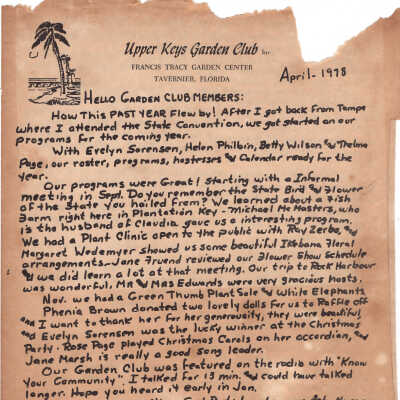 Upper Keys Garden Club Inc.
FRANCIS TRACY GARDEN CENTER
TAVERNIER, FLORIDA
April - 1978
HELLO GARDEN CLUB MEMBERS:
How This PAST YEAR Flew by! After I got back From Tampa
where I attended the State Convention, we got started on our
programs for the coming year.
With Evelyn Sorensen, Helen Philbin, Betty Wilson and Thelma
Page, our roster, programs, hostesses and Calendar ready for the
year.
Our programs were Great! Starting with a Informal
meeting in Sept. Do you remember the State Bird and Flower
of the State you hailed From? We learned about a Fish
Farm right here in Plantation Key - Michael McMasters, who
is the husband of Claudia, gave us a interesting program.
We had a Plant Clinic open to the public with Ray Zerba, and
Margaret Wedemyer showed us some beautiful Ikebana Floral
arrangements - Jane Fruend reviewed our Flower Show Schedule
and we did learn a lot at that meeting. Our trip to Rock Harbour
was wonderful. Mr and Mrs Edwards were very gracious hosts.
Nov. we had a Green Thumb Plant Sale and White Elephants
Phenia Brown donated two lovely dolls for us to Raffle off
and I want to thank her for her generousity, they were beautiful
and Evelyn Sorensen was the lucky winner at the Christmas
Party - Rose Page played Christmas Carols on her accordian, and
Jane Marsh is really a good song leader.
Our Garden Club was featured on the radio with "Know
Your Community". I talked for 13 min. and could have talked
longer. Hope you heard it early in Jan.